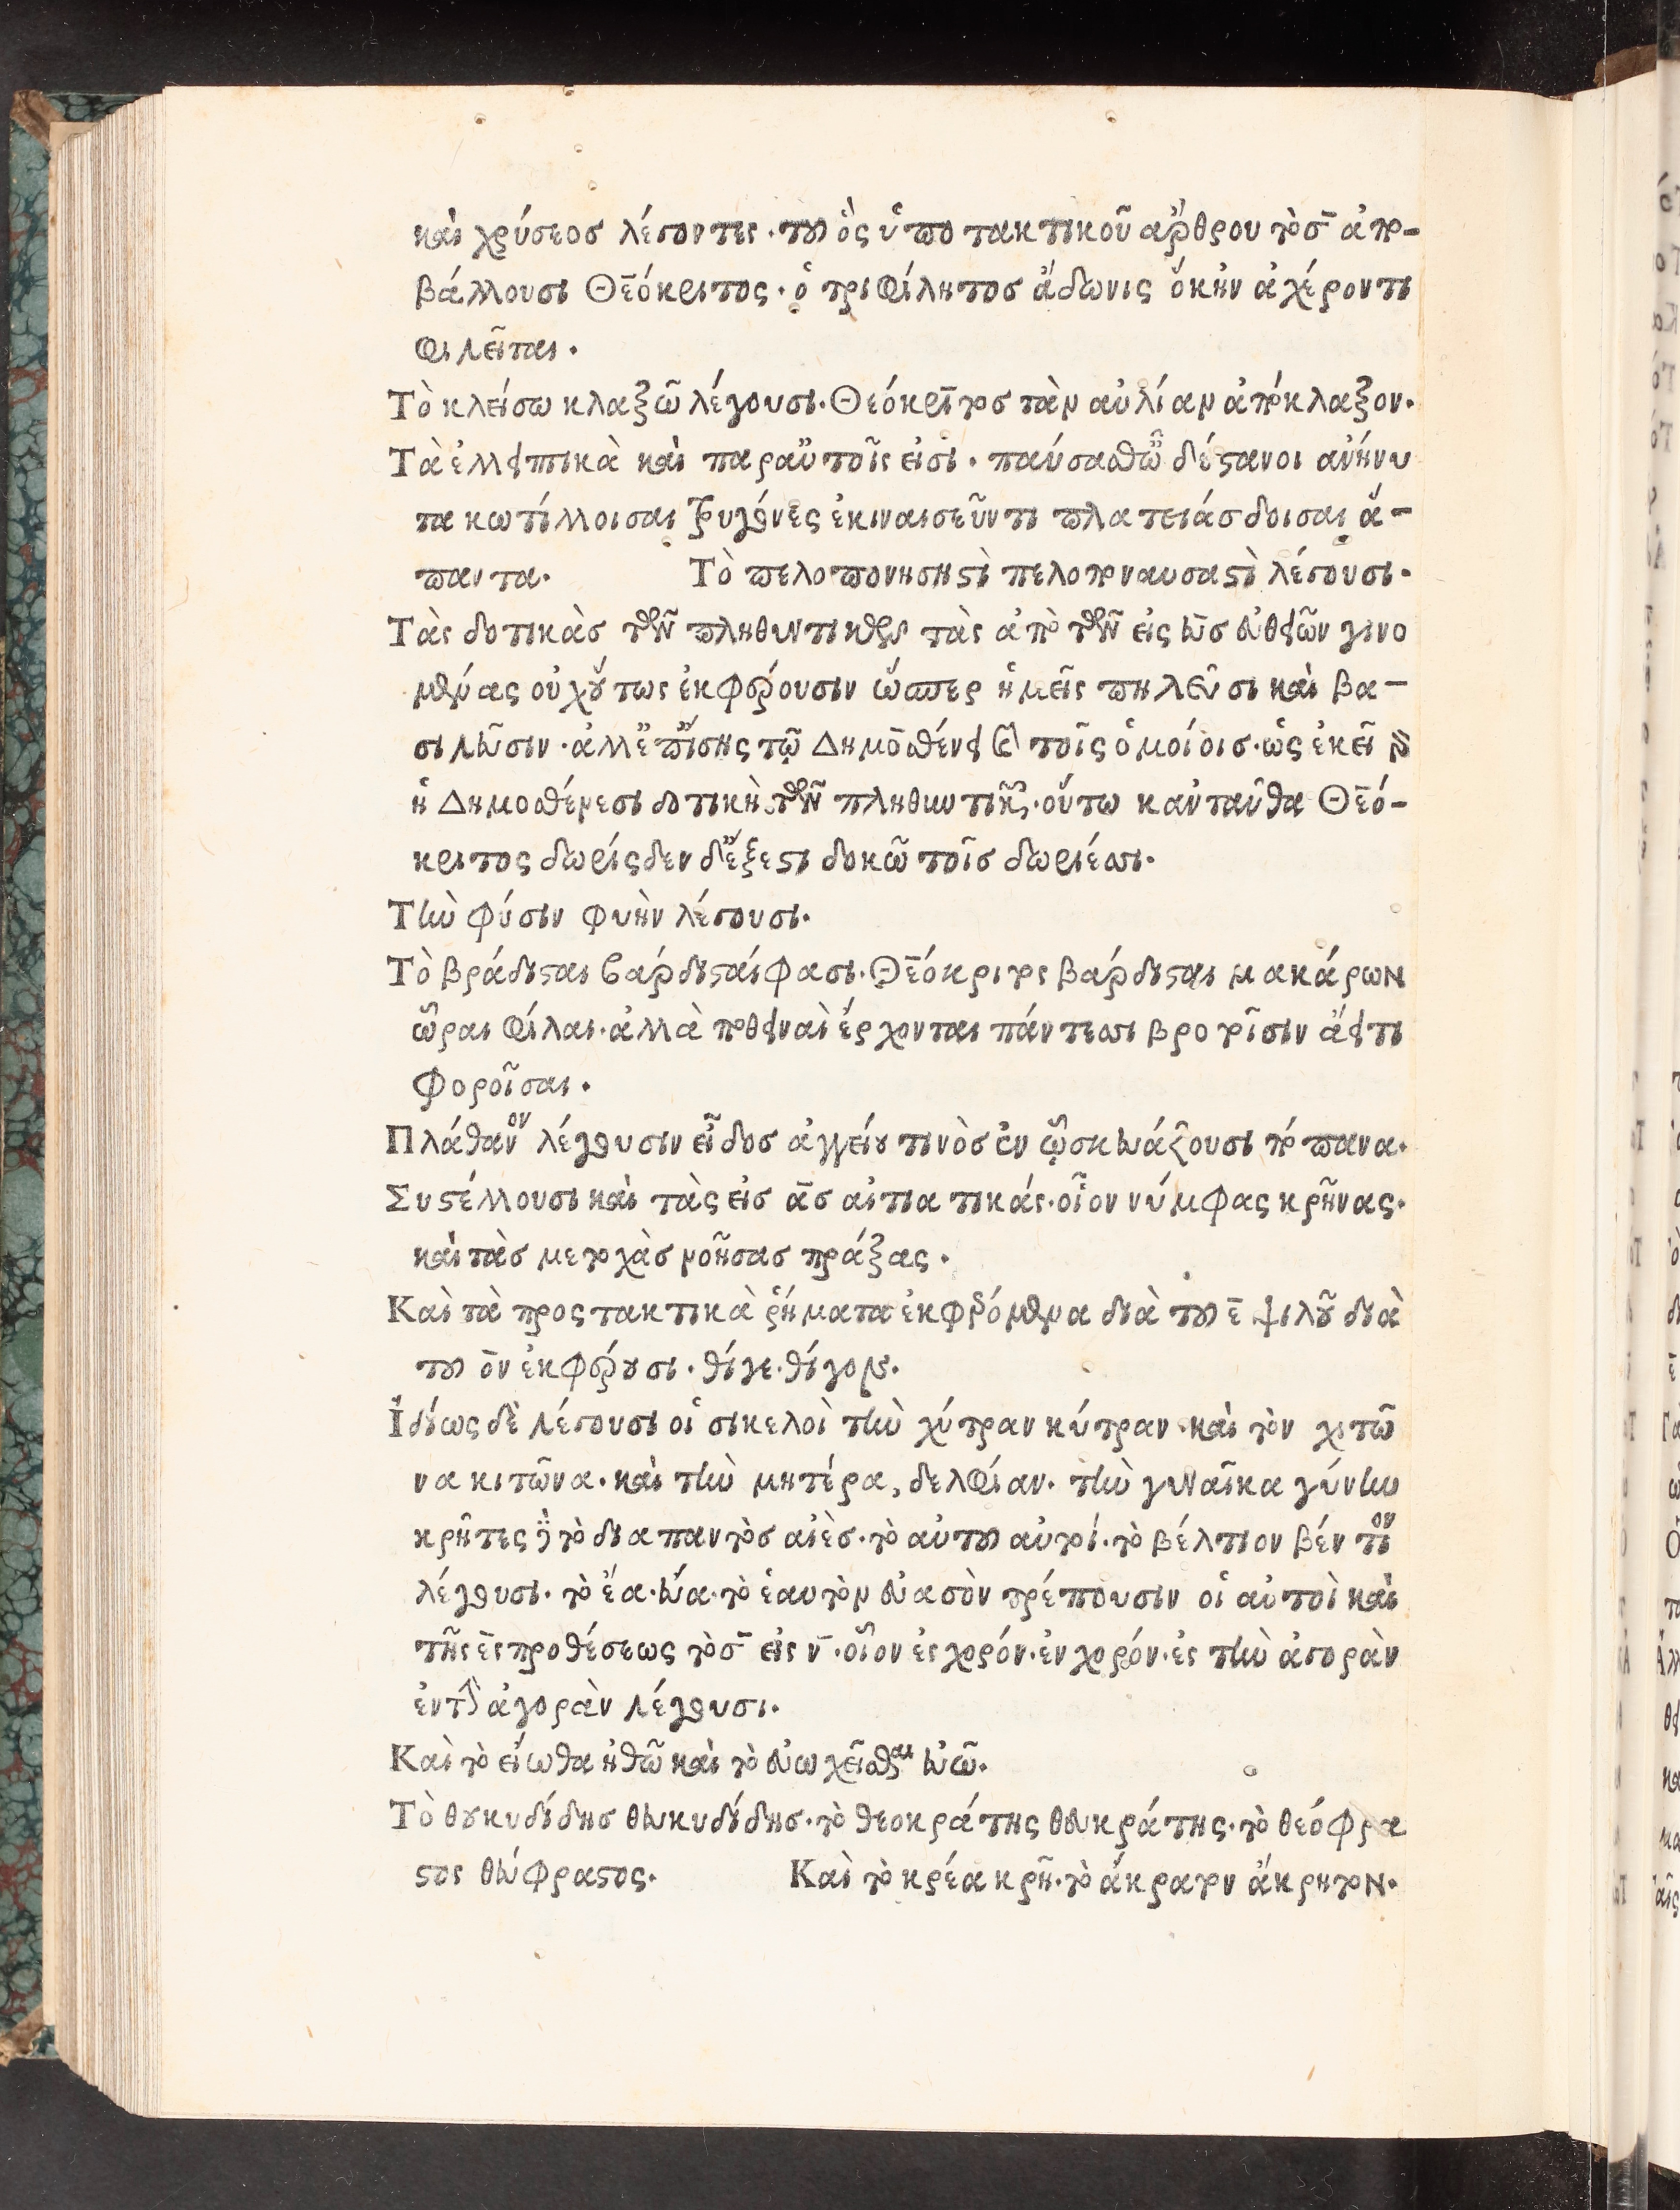 καὶ χρύσεος λέγοντες. τοῦ ὃς ὑποτακτικοῦ ἄρθρου τὸ σ̄ ἀπο-
βάλλουσι Θεόκριτος. ὁ τριφίλητος ἄδωνις ὁ κἠν ἀχέροντι
φιλεῖται.
Τὸ κλείσω κλαξῶ λέγουσι. Θεόκριτος τὰν αὐλίαν ἀπόκλαξον.
Τὰ ἐλλειπτικὰ καὶ παρ αὐτοῖς εἰσι. παύσασθ ὦ δύστανοι ἀνήνυ
τα κωτίλλοισαι τρυγόνες ἐκναισεῦντι πλατειάσδοισαι ἅ-
παντα. Τὸ πελοπονησηστὶ πελοποναυσαστὶ λέγουσι.
Τὰς δοτικὰς τῶν πληθυντικῶν τὰς ἀπὸ τῶν εἰς εὺς εὐθειῶν γινο
μένας οὐχ οὕτως ἐκφέρουσιν ὥσπερ ἡμεῖς πηλεῦσι καὶ βα-
σιλεῦσιν. ἀλλ ἐπίσης τῷ Δημοσθένει καὶ τοῖς ὁμοίοις. ὡς ἐκεῖ
ἡ Δημοσθένεσι δοτικὴ τῶν πληθυντικῶν. οὕτω κἀνταῦθα Θεό-
κριτος δωρίσδεν δ ἔξεστι δοκῶ τοῖς δωριέεσσι.
Τὴν φύσιν φυὴν λέγουσι.
Τὸ βράδισται βάρδισταί φασι. Θεόκριτος βάρδισται μακάρων
ὧραι φίλαι. ἀλλὰ ποθειναὶ ἔρχονται πάντεσσι βροτοῖσιν ἀεί τι
φοροῖσαι.
Πλάθανον λέγουσιν εἶδος ἀγγείου τινὸς ἐν ᾧ σκευάζουσι πόπανα.
Συστέλλουσι καὶ τὰς εἰς ᾱς αἰτιατικάς. οἷον νύμφας κρῆνας.
καὶ τὰς μετοχὰς νοήσας πράξας.
Καὶ τὰ προστακτικὰ ῥήματα ἐκφερόμενα διὰ τοῦ ε̄ ψιλοῦ διὰ
τοῦ ὸν ἐκφέρουσι. θίγε. θίγον.
Ἰδίως δὲ λέγουσι οἱ σικελοὶ τὴν χύτραν κύτραν. καὶ τὸν χιτῶ
να κιτῶνα. καὶ τὴν μητέρα, δελφίαν. τὴν γυναῖκα γύνην
κρῆτες δὲ τὸ διαπαντὸς αἰὲς. τὸ αὐτοῦ αὐτοί. τὸ βέλτιον βέντιον
λέγουσι. τὸ ἔα. εὔα. τὸ ἑαυτὸν εὐασὸν τρέπουσιν οἱ αὐτοὶ καὶ
τῆς ἐς προθέσεως τὸ σ̄ εἰς ν̄. οἷον ἐς χορόν. ἐν χορόν. ἐς τὴν ἀγορὰν
ἐν τὴν ἀγορὰν λέγουσι.
Καὶ τὸ εἴωθα ἠθῶ καὶ τὸ εὐωχεῖσθαι εὐῶ.
Τὸ θουκυδίδης θευκυδίδης. τὸ θεοκράτης θευκράτης. τὸ θεόφρα
στος θεύφραστος. Καὶ τὸ κρέα κρῆ. τὸ ἄκρατον ἄκρητον.